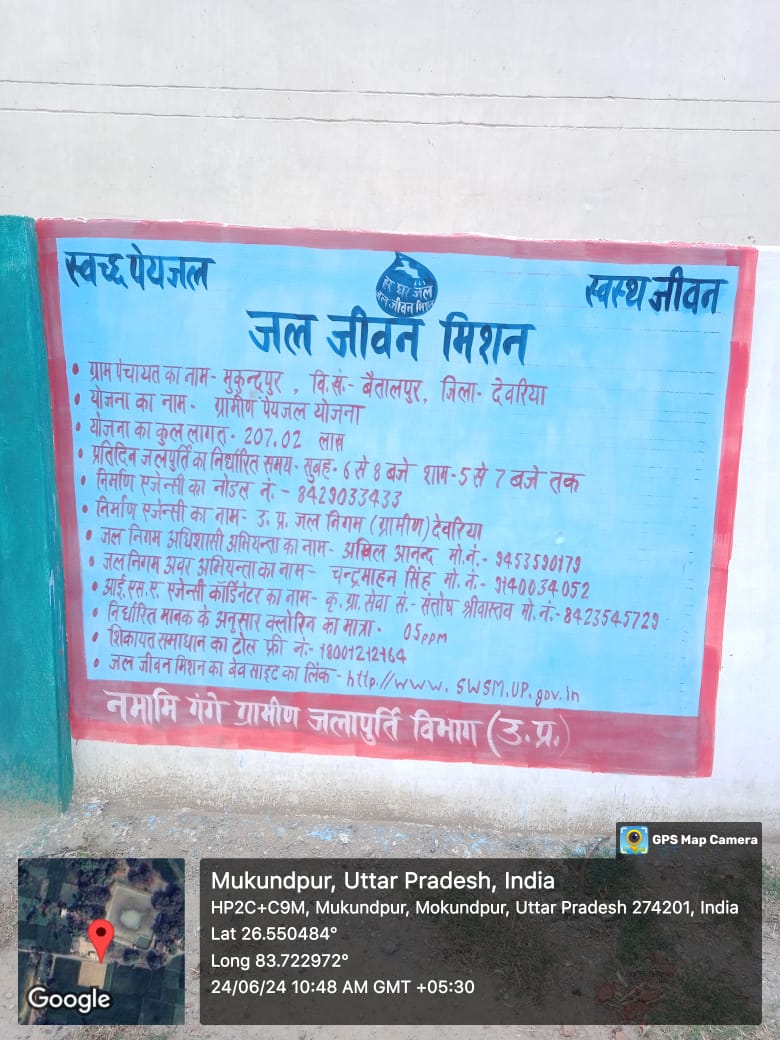 स्वच्छ पेयजल
हर घर जल
जल जीवन मिशन
स्वस्थ जीवन
जल जीवन मिशन
• ग्राम पंचायत का नाम- मुकुन्दपुर , वि.सं.- बैतालपुर, जिला- देवरिया
• योजना का नाम- ग्रामीण पेयजल योजना
• योजना का कुल लागत- 207.02 लाख
• प्रतिदिन जलपुर्ति का निर्धारित समय- सुबह- 6 से 8 बजे शाम-5 से 7 बजे तक
• निर्माण एजेन्सी का नोडल नं. - 8429033433
• निर्माण एजेन्सी का नाम- उ. प्र. जल निगम (ग्रामीण) देवरिया
• जल निगम अधिशासी अभियन्ता का नाम- अखिल आनन्द मो.नं.- 9453590179
• जल निगम अवर अभियन्ता का नाम- चन्द्रमोहन सिंह मो. नं.- 9140034052
• आई.एस.ए. एजेन्सी कॉर्डिनेटर का नाम- कृ.ग्रा.सेवा सं.- संतोष श्रीवास्तव मो.नं.-8423545729
• निर्धारित मानक के अनुसार क्लोरिन का मात्रा- 05ppm
• शिकायत समाधान का टोल फ्री नं.-18001212164
• जल जीवन मिशन का बेव साइट का लिंक- http//www.swsm.up.gov.in
नमामि गंगे ग्रामीण जलापुर्ति विभाग (उ.प्र.)
GPS Map Camera
Mukundpur, Uttar Pradesh, India
HP2C+C9M, Mukundpur, Mokundpur, Uttar Pradesh 274201, India
Lat 26.550484°
Long 83.722972°
24/06/24 10:48 AM GMT +05:30
Google